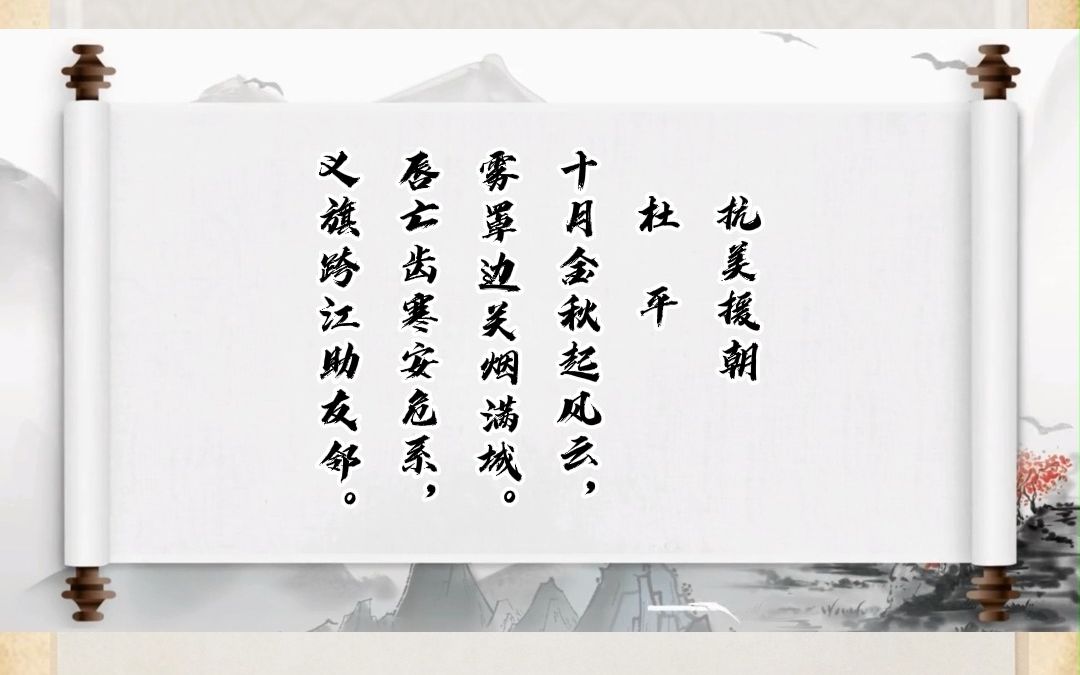 抗美援朝
杜 平
十月金秋起风云，
雾罩边关烟满城。
唇亡齿寒安危系，
义旗跨江助友邻。